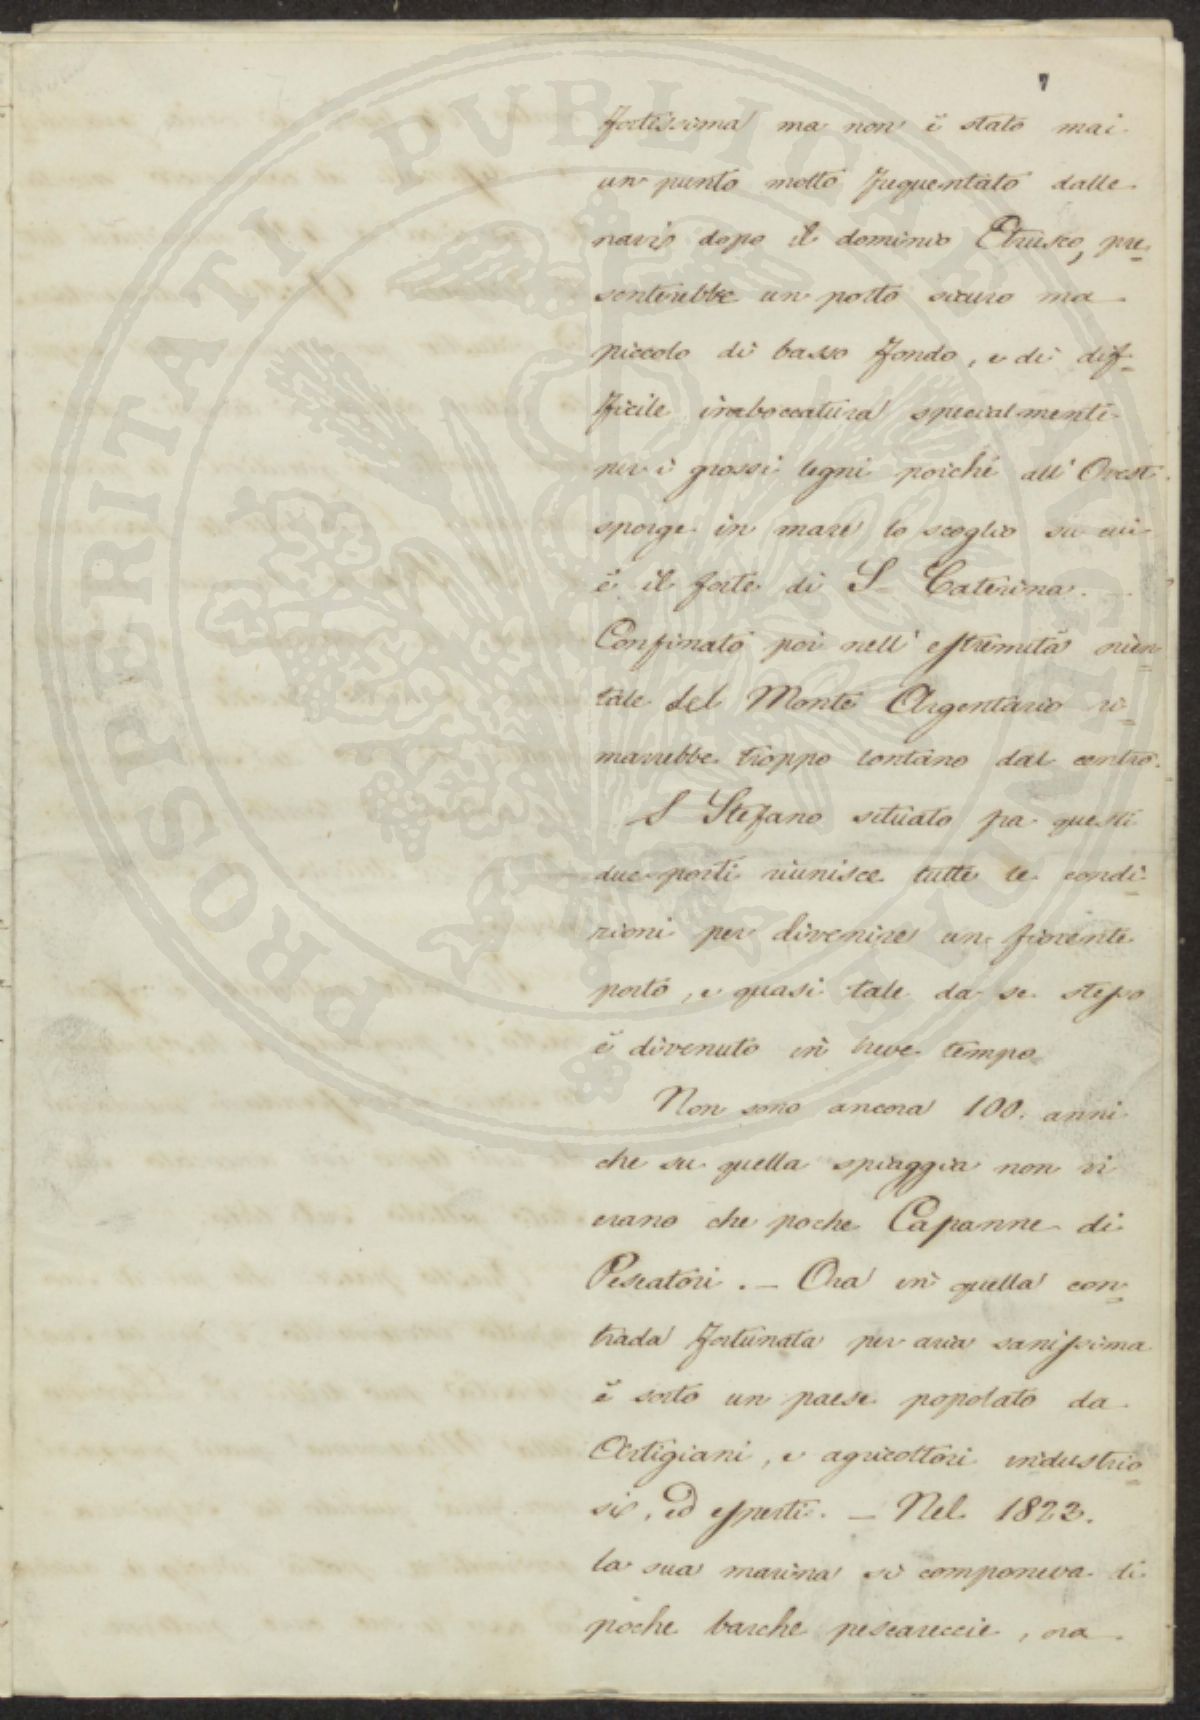 7
fortissima ma non è stato mai
un punto molto frequentato dalle
navi dopo il dominio Etrusco, pre=
senterebbe un porto sicuro ma
piccolo di basso fondo, e di dif=
ficile imboccatura specialmente
per i grossi legni poichè all' Ovest
sporge in mare lo scoglio su cui
è il forte di S. Caterina.
Confinato poi nell' estremità orien=
tale del Monte Argentario ri=
marrebbe troppo lontano dal centro.
S Stefano situato fra questi
due porti riunisce tutte le condi=
zioni per divenire un fiorente
porto, e quasi tale da se stesso
è divenuto in breve tempo
Non sono ancora 100. anni
che su quella spiaggia non vi
erano che poche Capanne di
Pescatori. — Ora in quella con=
trada fortunata per aria sanissima
è sorto un paese popolato da
Artigiani, e agricoltori industrio=
si, ed esperti. — Nel 1823.
la sua marina si componeva di
poche barche pescareccie, ora
PROSPERITATI PUBLICAE